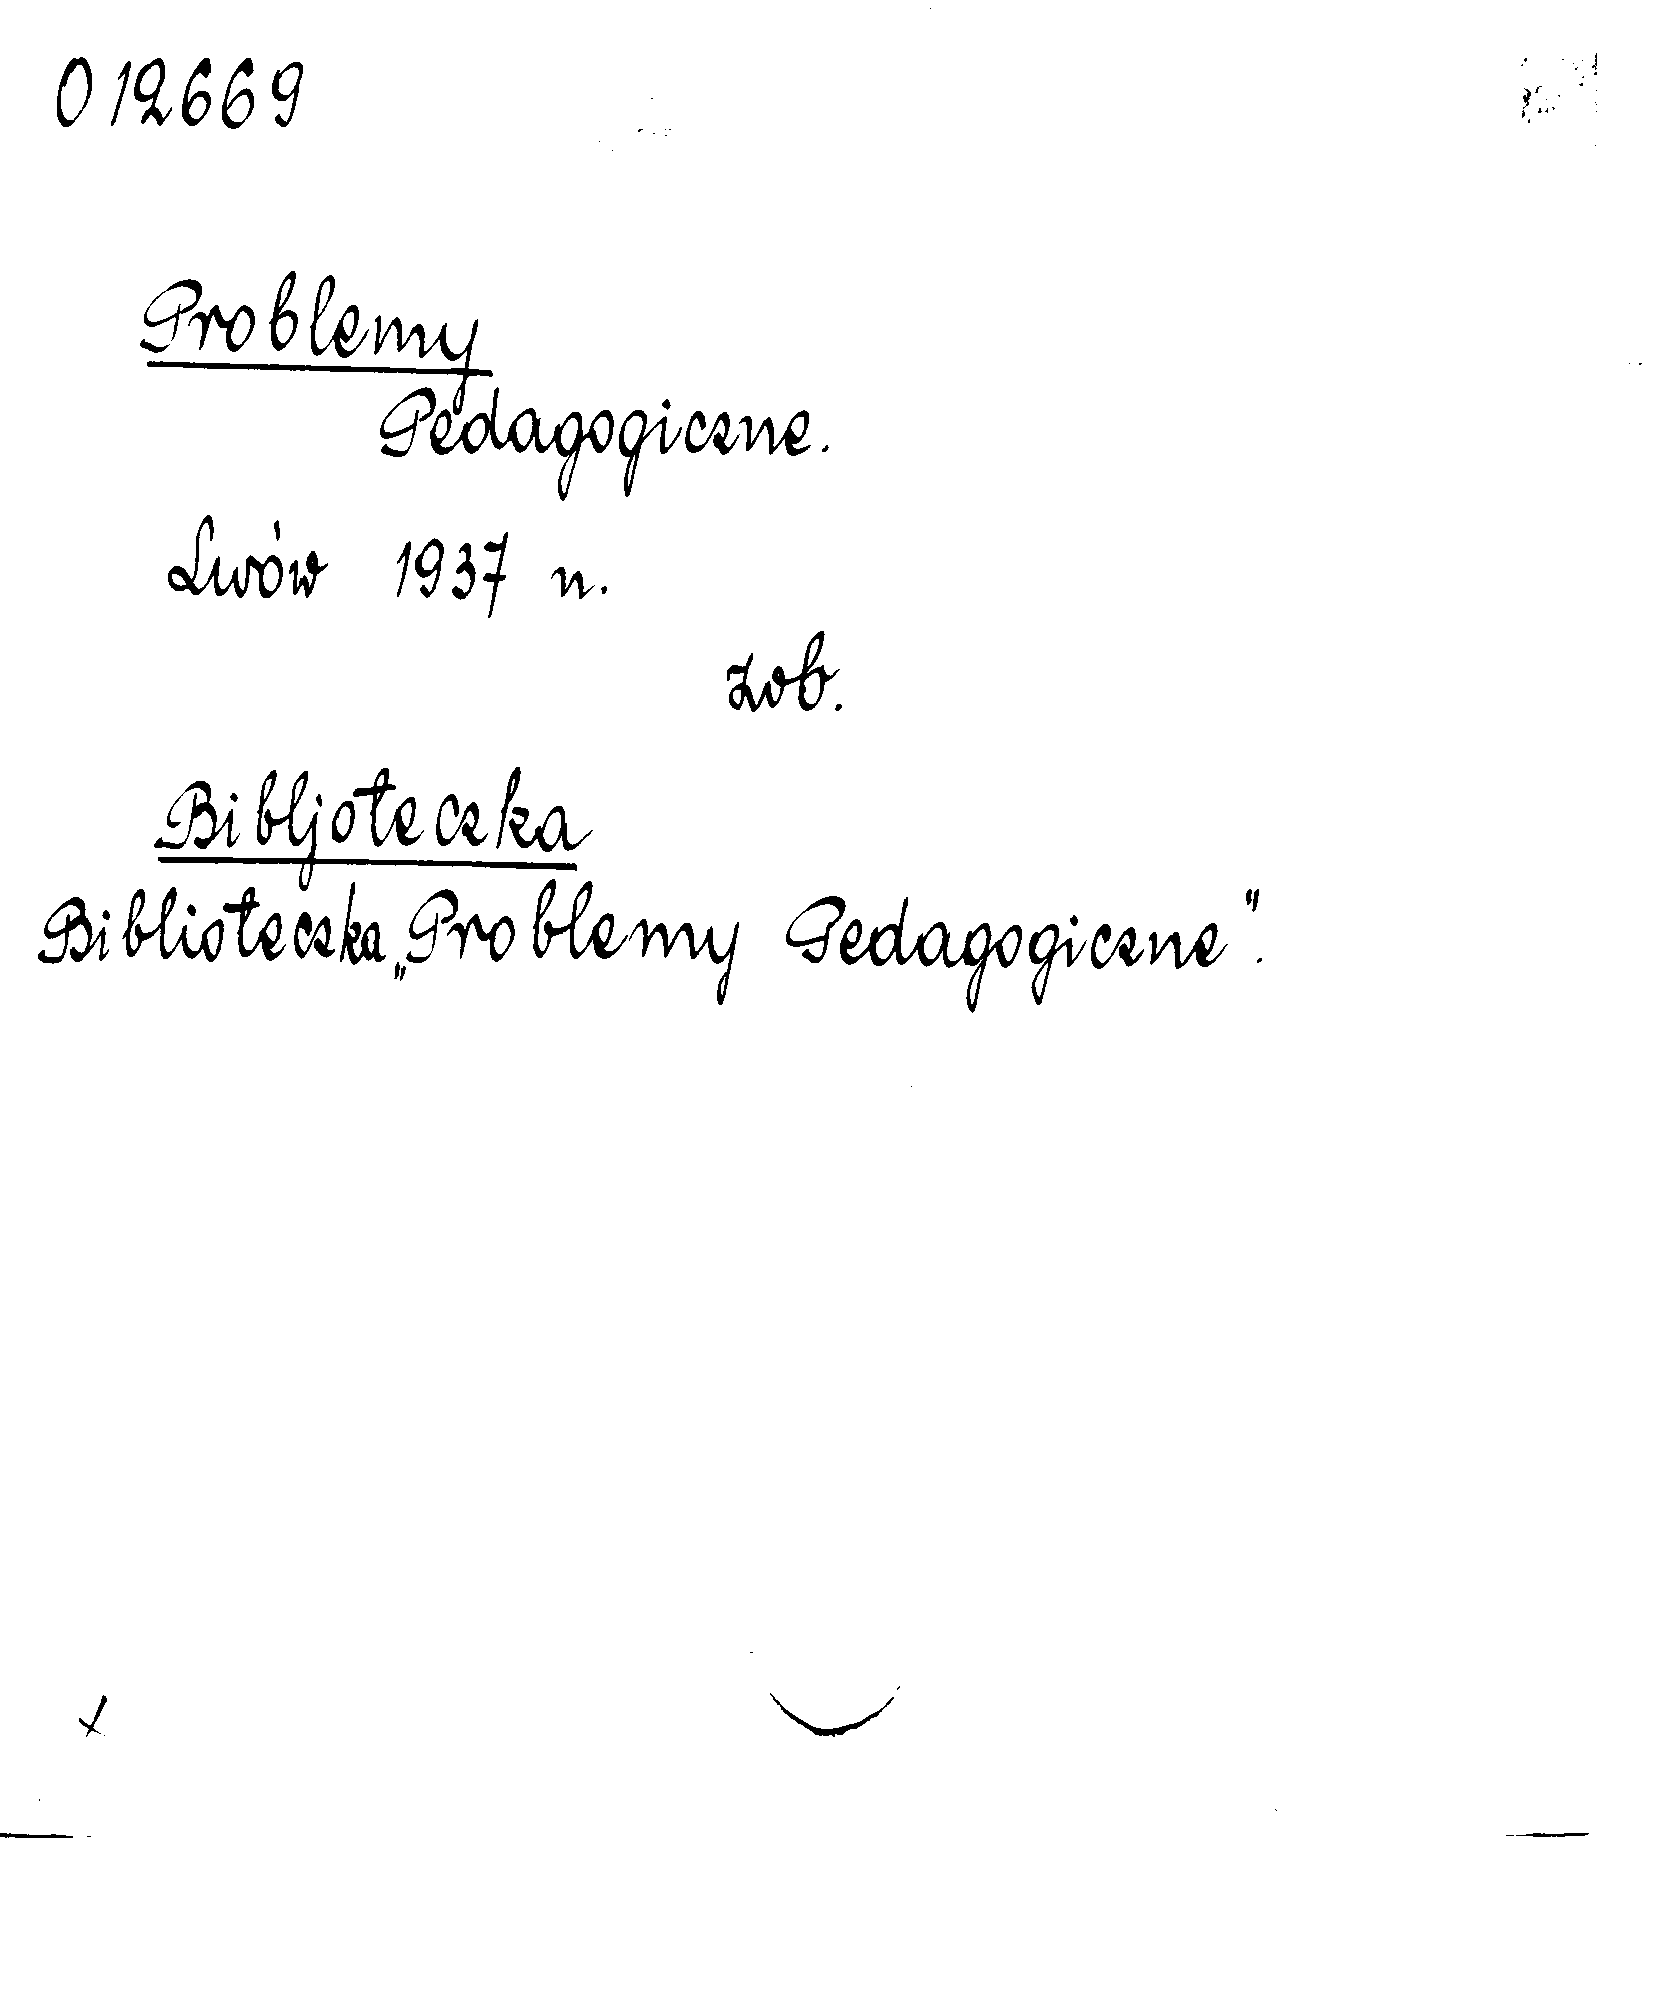 012669
Problemy
Pedagogiczne.
Lwów 1937 n.
zob.
Bibljoteczka
Biblioteczka „Problemy Pedagogiczne".